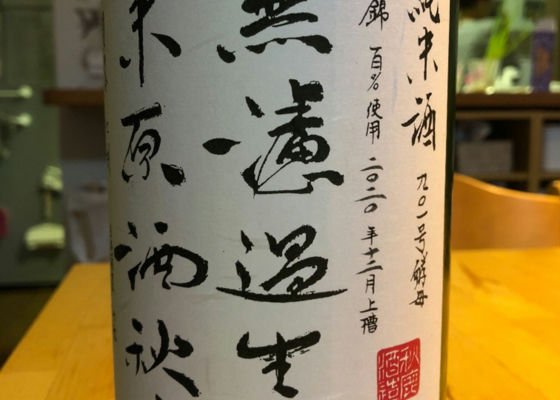 純米酒 九〇一号酵母
錦 百%使用 二〇二〇年十二月上槽
無濾過生
米原酒秋
秋鹿
酒造